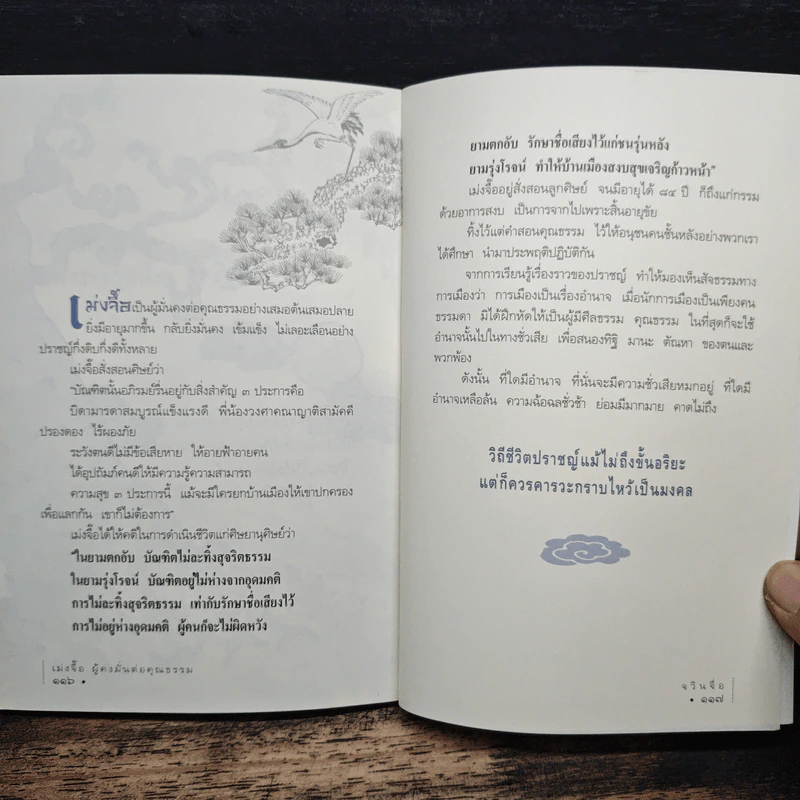 เม่งจื๊อเป็นผู้มั่นคงต่อคุณธรรมอย่างเสมอต้นเสมอปลาย
ยิ่งมีอายุมากขึ้น กลับยิ่งมั่นคง เข้มแข็ง ไม่เลอะเลือนอย่าง
ปราชญ์กึ่งดิบกึ่งดีทั้งหลาย
เม่งจื๊อสั่งสอนศิษย์ว่า
"บัณฑิตนั้นอภิรมย์รื่นอยู่กับสิ่งสำคัญ ๓ ประการคือ
บิดามารดาสมบูรณ์แข็งแรงดี พี่น้องวงศาคณาญาติสามัคคี
ปรองดอง ไร้ผองภัย
ระวังตนดีไม่มีข้อเสียหาย ให้อายฟ้าอายคน
ได้อุปถัมภ์คนดีให้มีความรู้ความสามารถ
ความสุข ๓ ประการนี้ แม้จะมีใครยกบ้านเมืองให้เขาปกครอง
เพื่อแลกกัน เขาก็ไม่ต้องการ"
เม่งจื๊อได้ให้คติในการดำเนินชีวิตแก่ศิษยานุศิษย์ว่า
"ในยามตกอับ บัณฑิตไม่ละทิ้งสุจริตธรรม
ในยามรุ่งโรจน์ บัณฑิตอยู่ไม่ห่างจากอุดมคติ
การไม่ละทิ้งสุจริตธรรม เท่ากับรักษาชื่อเสียงไว้
การไม่อยู่ห่างอุดมคติ ผู้คนก็จะไม่ผิดหวัง
เม่งจื๊อ ผู้คงมั่นต่อคุณธรรม
๑๑๖ •
ยามตกอับ รักษาชื่อเสียงไว้แก่ชนรุ่นหลัง
ยามรุ่งโรจน์ ทำให้บ้านเมืองสงบสุขเจริญก้าวหน้า"
เม่งจื๊ออยู่สั่งสอนลูกศิษย์ จนมีอายุได้ ๘๔ ปี ก็ถึงแก่กรรม
ด้วยอาการสงบ เป็นการจากไปเพราะสิ้นอายุขัย
ทิ้งไว้แต่คำสอนคุณธรรม ไว้ให้อนุชนคนชั้นหลังอย่างพวกเรา
ได้ศึกษา นำมาประพฤติปฏิบัติกัน
จากการเรียนรู้เรื่องราวของปราชญ์ ทำให้มองเห็นสัจธรรมทาง
การเมืองว่า การเมืองเป็นเรื่องอำนาจ เมื่อนักการเมืองเป็นเพียงคน
ธรรมดา มิได้ฝึกหัดให้เป็นผู้มีศีลธรรม คุณธรรม ในที่สุดก็จะใช้
อำนาจนั้นไปในทางชั่วเสีย เพื่อสนองทิฐิ มานะ ตัณหา ของตนและ
พวกพ้อง
ดังนั้น ที่ใดมีอำนาจ ที่นั่นจะมีความชั่วเสียหมกอยู่ ที่ใดมี
อำนาจเหลือล้น ความฉ้อฉลชั่วช้า ย่อมมีมากมาย คาดไม่ถึง
วิถีชีวิตปราชญ์แม้ไม่ถึงขั้นอริยะ
แต่ก็ควรคารวะกราบไหว้เป็นมงคล
จวินจื่อ
• ๑๑๗